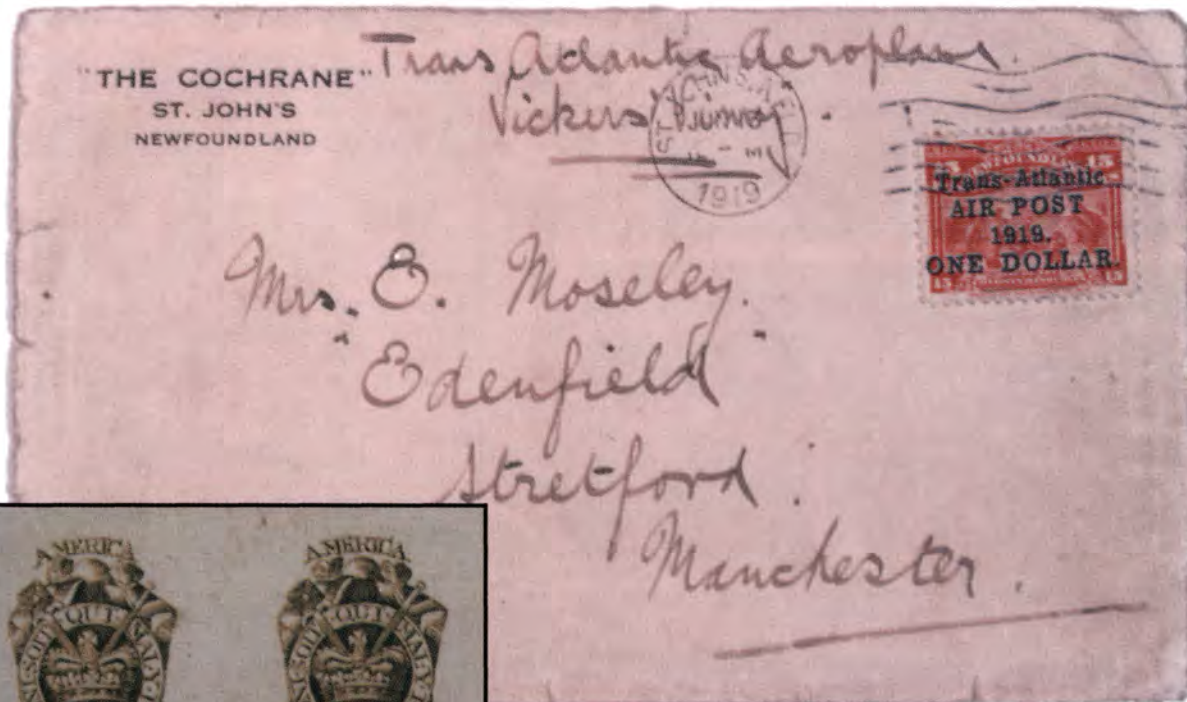 "THE COCHRANE"
ST. JOHN'S
NEWFOUNDLAND
Trans Atlantic Aeroplane.
Vickers Vimy.
1919
NEWFOUNDLAND
15 15
Trans-Atlantic
AIR POST
1919.
ONE DOLLAR.
15 15
Mrs. E. Moseley.
"Edenfield"
Stretford.
Manchester.
AMERICA
QUI
AMERICA
QUI